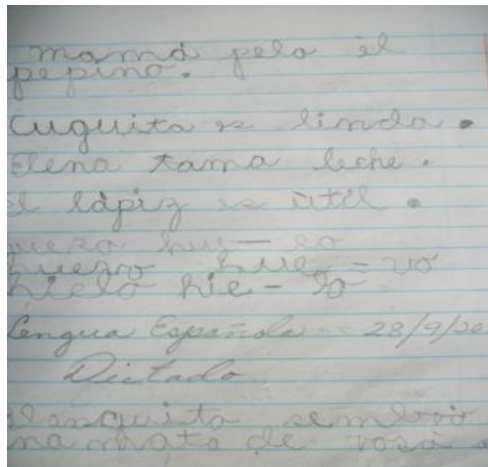 mamá pela el
pepino.
Cuquita es linda.
Elena tama leche.
el lápiz es útil.
hue-
huevo hue = vo
hielo hie - lo
Lengua Española 28/9/20
Dictado
Blanquito sembró
na mata de rosa